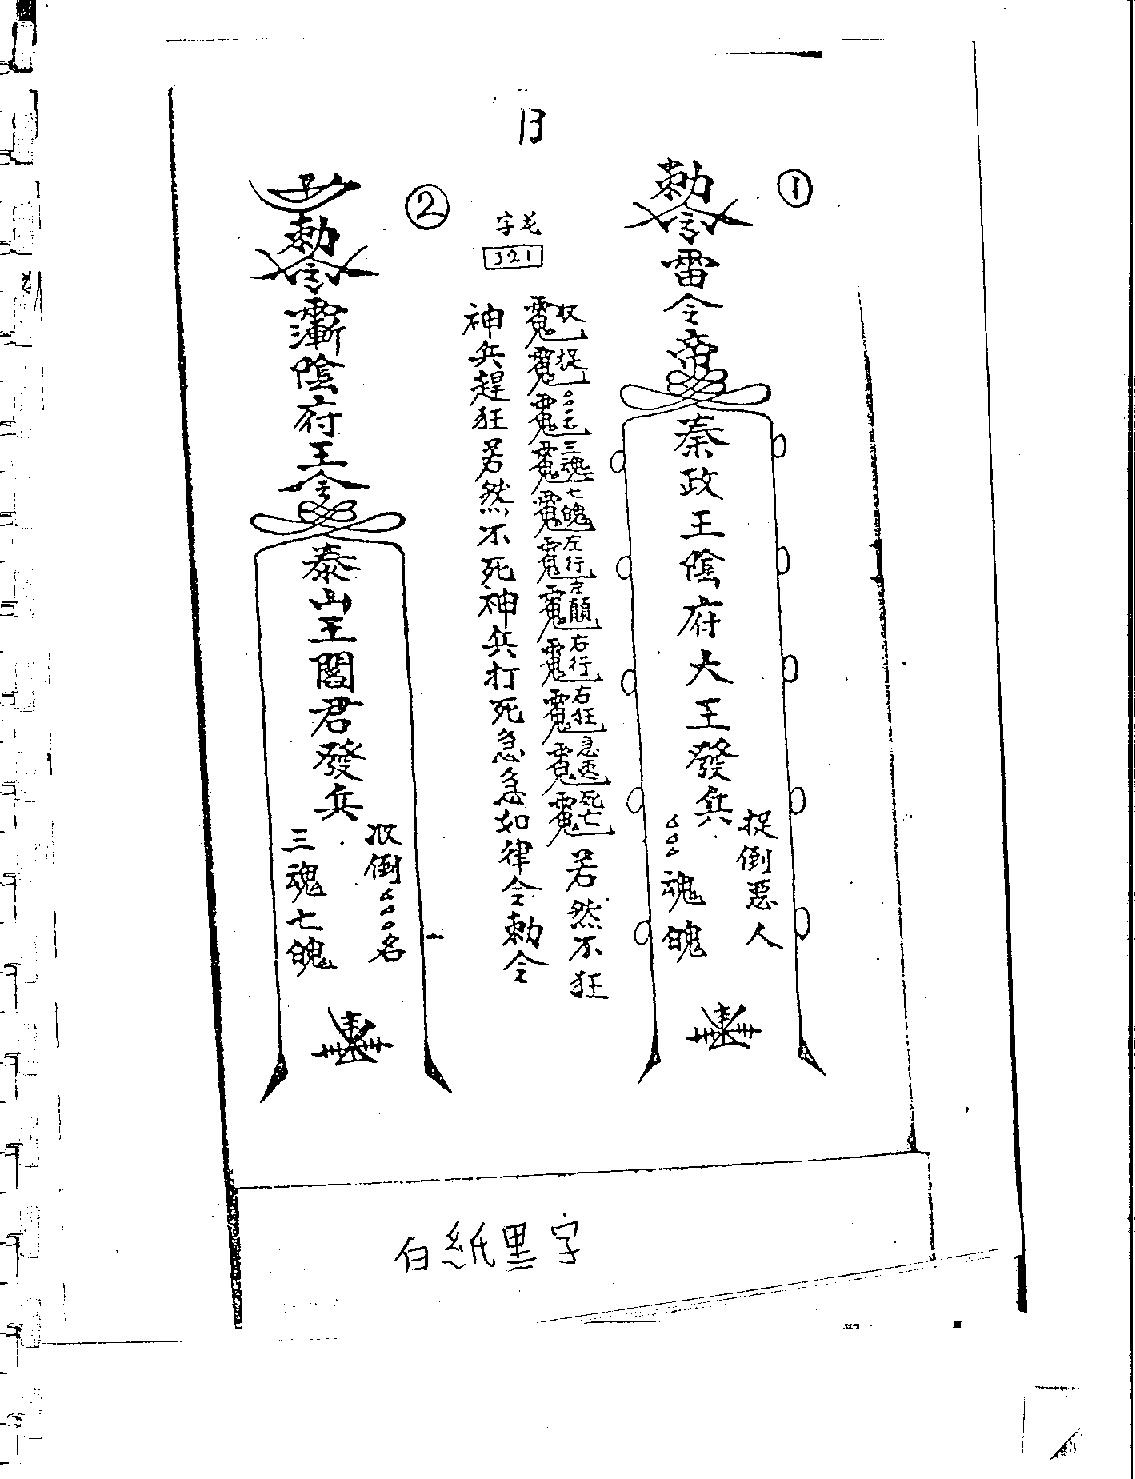 ①
勅令雷令帝
秦政王陰府大王發兵
捉倒惡人
魂魄
字花
321
收捉 三魂七魄左行左顛右行右狂急速死亡若然不狂
神兵趕狂若然不死神兵打死急急如律令勅令
②
勅令 陰府王令
泰山王閻君發兵
收倒 名
三魂七魄
白紙黑字